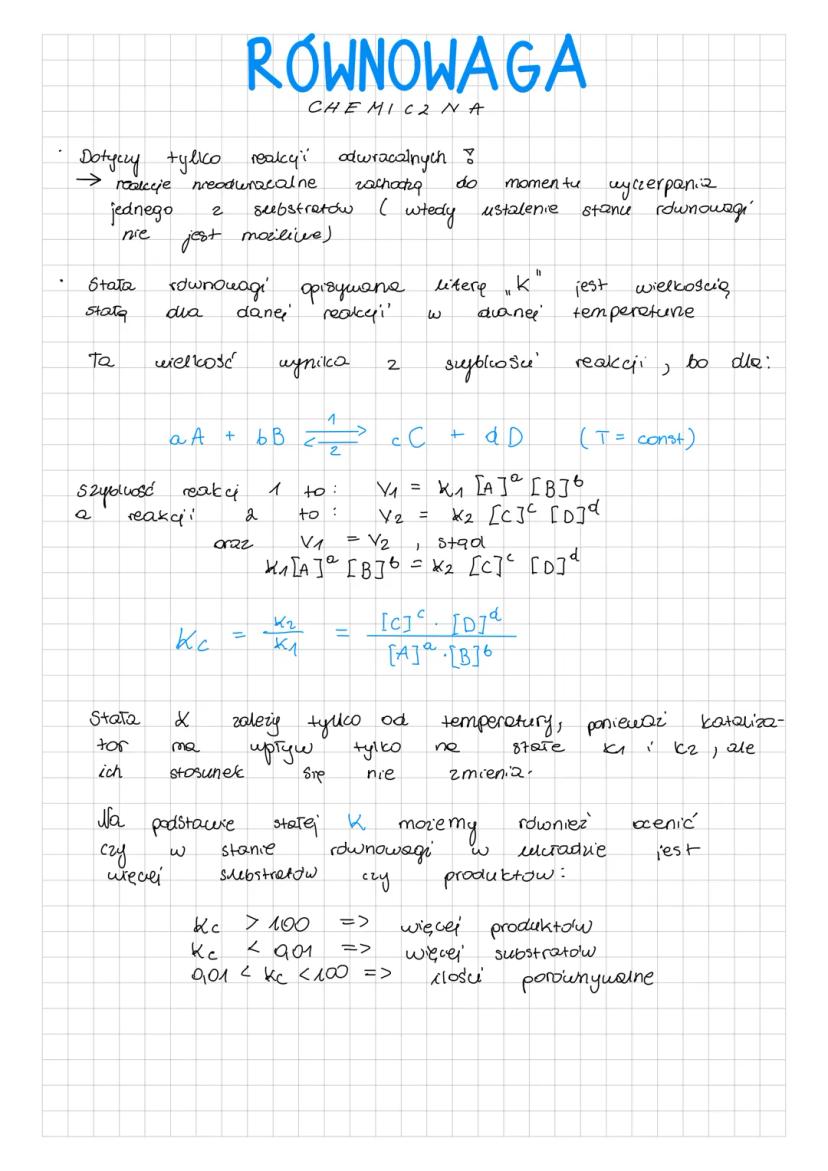 RÓWNOWAGA
CHEMICZNA
· Dotyczy tylko reakcji odwracalnych !
→ reakcje nieodwracalne zachodzą do momentu wyczerpania
jednego z substratów ( wtedy ustalenie stanu równowagi
nie jest możliwe)
· Stała równowagi opisywana literą „K" jest wielkością
stałą dla danej reakcji w danej temperaturze
Ta wielkość wynika z szybkości reakcji , bo dla:
aA + bB ⇄ cC + dD (T = const)
1
2
Szybkość reakcji 1 to : V1 = K1 [A]^a [B]^b
a reakcji 2 to : V2 = K2 [C]^c [D]^d
oraz V1 = V2 , stąd
K1[A]^a [B]^b = K2 [C]^c [D]^d
Kc = K2/K1 = [C]^c · [D]^d / [A]^a · [B]^b
Stała K zależy tylko od temperatury, ponieważ kataliza-
tor ma wpływ tylko na stałe K1 i K2 , ale
ich stosunek się nie zmienia.
Na podstawie stałej K możemy również ocenić
czy w stanie równowagi w układzie jest
więcej substratów czy produktów :
Kc > 100 => więcej produktów
Kc < 0,01 => więcej substratów
0,01 < Kc < 100 => ilości porównywalne